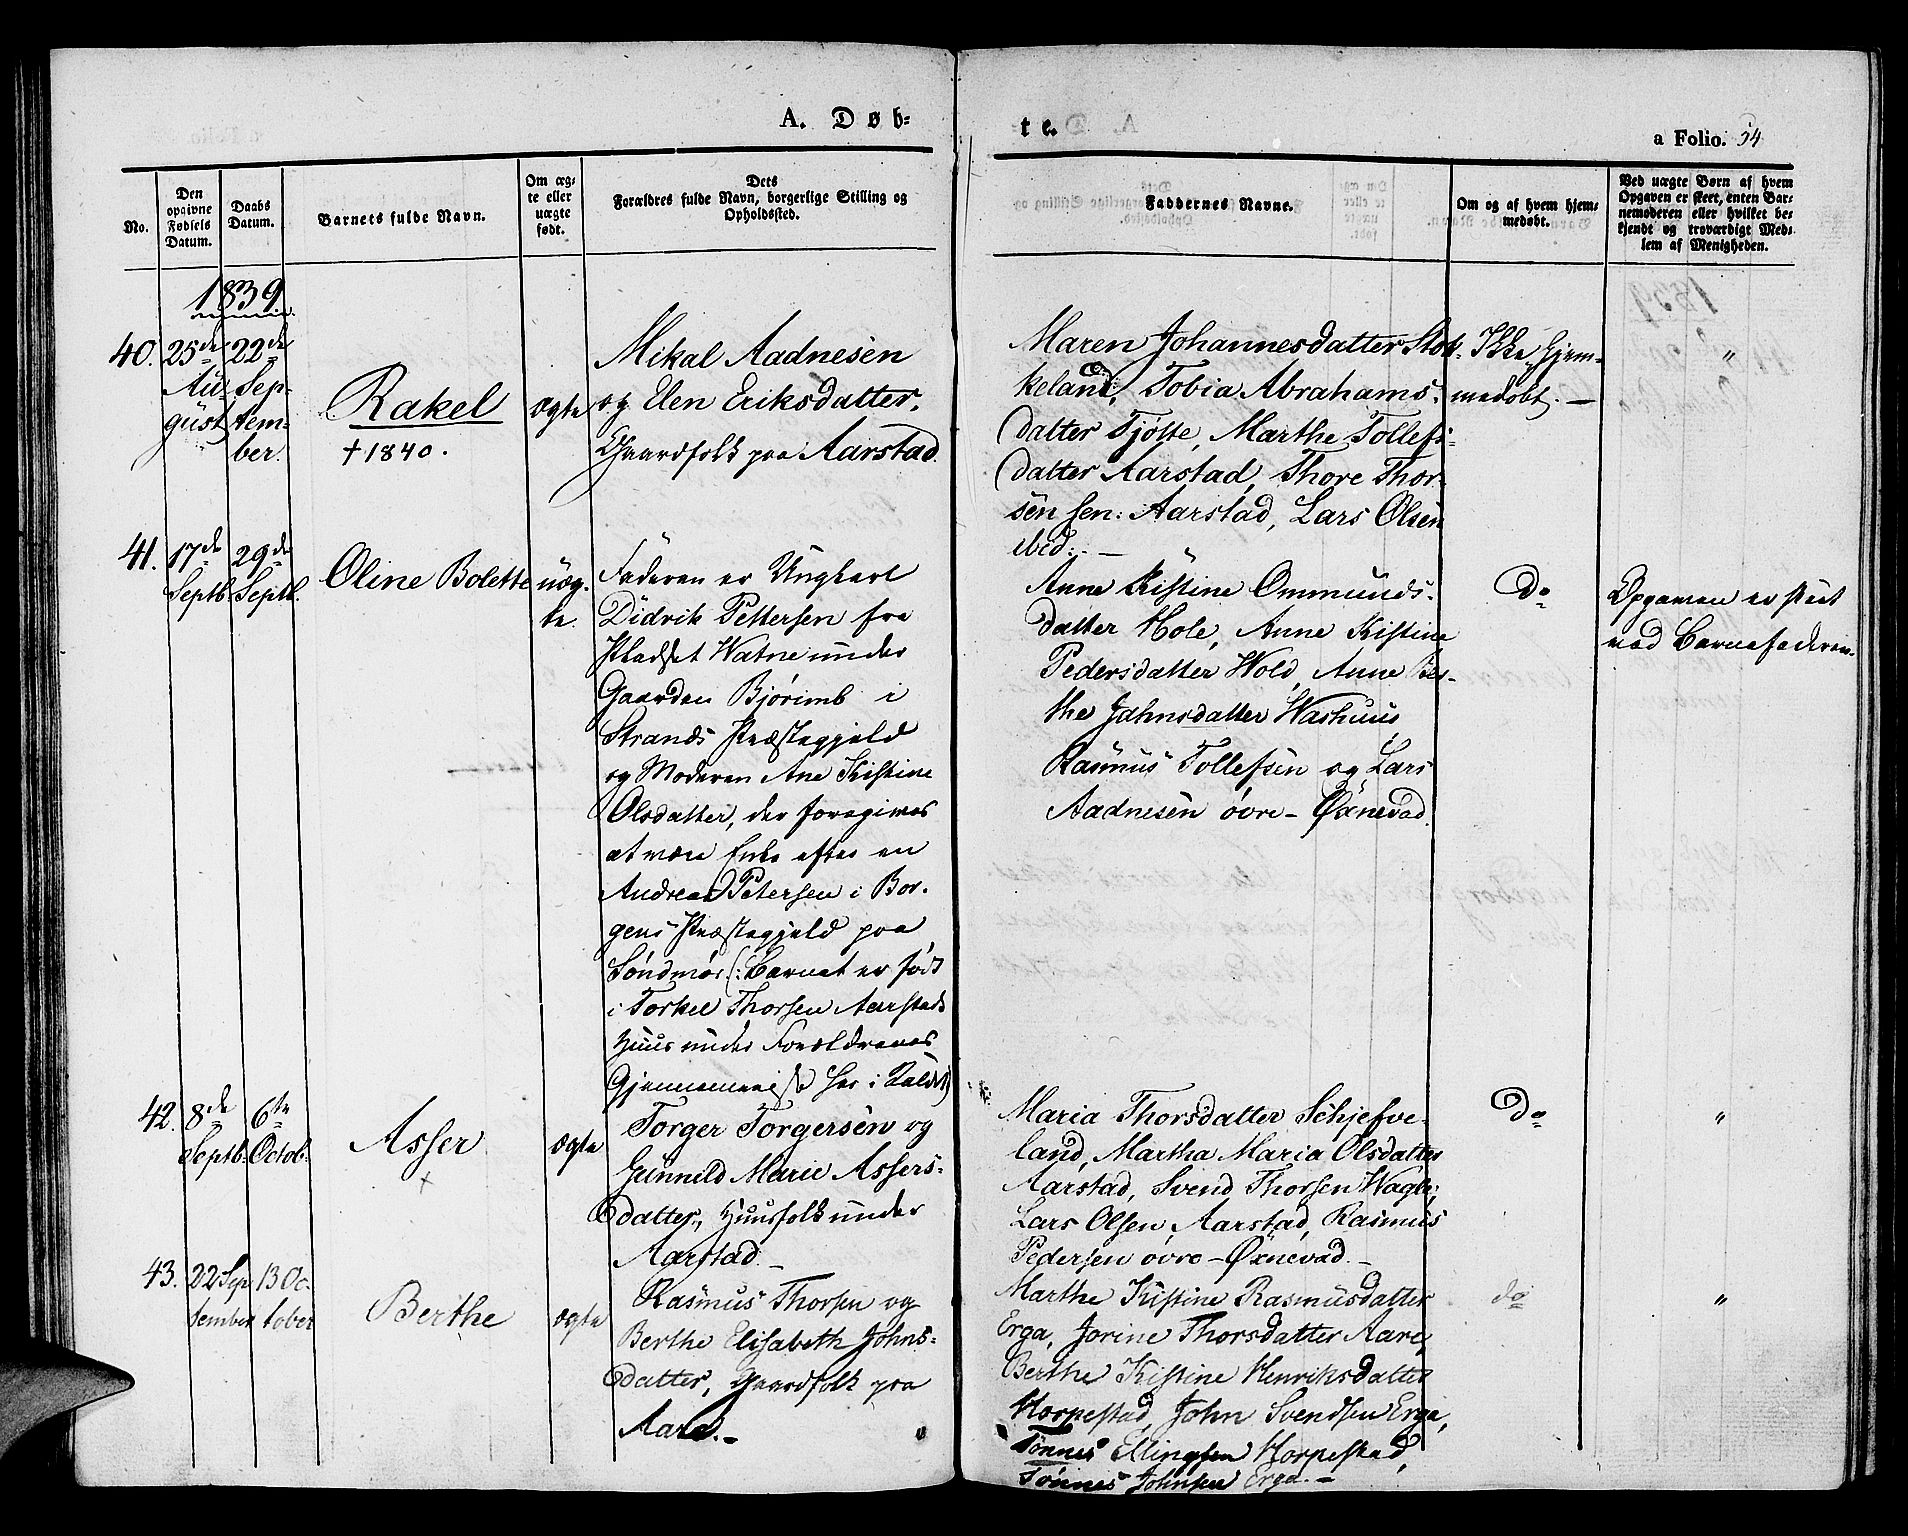 A. Døb-
te.
a Folio. 54
No.
Den
opgivne
Fødsels
Datum.
Daabs
Datum.
Barnets fulde Navn.
Om æg-
te eller
uægte
født.
Dets
Forældres fulde Navn, borgerlige Stilling og
Opholdssted.
Faddernes Navne.
Om og af hvem hjem-
medøbt.
Ved uægte Børn af hvem
Opgaven er skeet, enten Bar-
nemoderen eller hvilket be-
kjendt og troværdigt Med-
lem af Menigheden.
1839
40.
25de
Au-
gust
22de
Sep-
tem-
ber.
Rakel
† 1840.
ægte
Mikal Aadnesen
og Elen Eriksdatter,
Gaardfolk paa Aarstad.
Maren Johannesdatter Stok-
keland, Tobia Abrahams-
datter Tjøtte, Marthe Tollefs-
datter Aarstad, Thore Thor-
sen sen: Aarstad, Lars Olsen
ibid: –
Ikke Hjem-
medøbt. –
"
41.
17de
Septb.
29de
Septb.
Oline Bolette
uæg-
te.
Faderen er Ungkarl
Didrik Pettersen fra
Pladset Watne under
Gaarden Bjørimb i
Strands Præstegjeld
og Moderen Ane Kistine
Olsdatter, der foregives
at være Enke efter en
Andreas Petersen i Bor-
gens Præstegjeld paa
Søndmør (: Barnet er født
i Torkel Thorsen Aarstads
Huus under Forældrenes
Gjennemreise her i Kaldet)
Anne Kistine Ommunds-
datter Hole, Anne Kistine
Pedersdatter Wold, Anne Ber-
the Jahnsdatter Washuus
Rasmus Tollefsen og Lars
Aadnesen øvre – Øxnevad.
Do
Opgaven er skeet
ved Barnefaderen.
42.
8de
Septb.
6te
Octob.
Asser
+
ægte
Torger Torgersen og
Gunnild Marie Assers-
datter, Huusfolk under
Aarstad. –
Maria Thorsdatter Schjefve-
land, Martha Maria Olsdatter
Aarstad, Svend Thorsen Wagle,
Lars Olsen, Aarstad, Rasmus
Pedersen øvre – Øxnevad. –
Do
"
43.
22 Sep
tember
13 Oc-
tober
Berthe
ægte
Rasmus Thorsen og
Berthe Elisabeth Johns-
datter, Gaardfolk paa
Aare. –
Marthe Kistine Rasmusdatter
Erga, Jorine Thorsdatter Aare,
Berthe Kistine Henriksdatter
Horpestad, John Svendsen Erga,
Tønnes Ellingsen Horpestad,
Tønnes Johnsen Erga. –
do
"